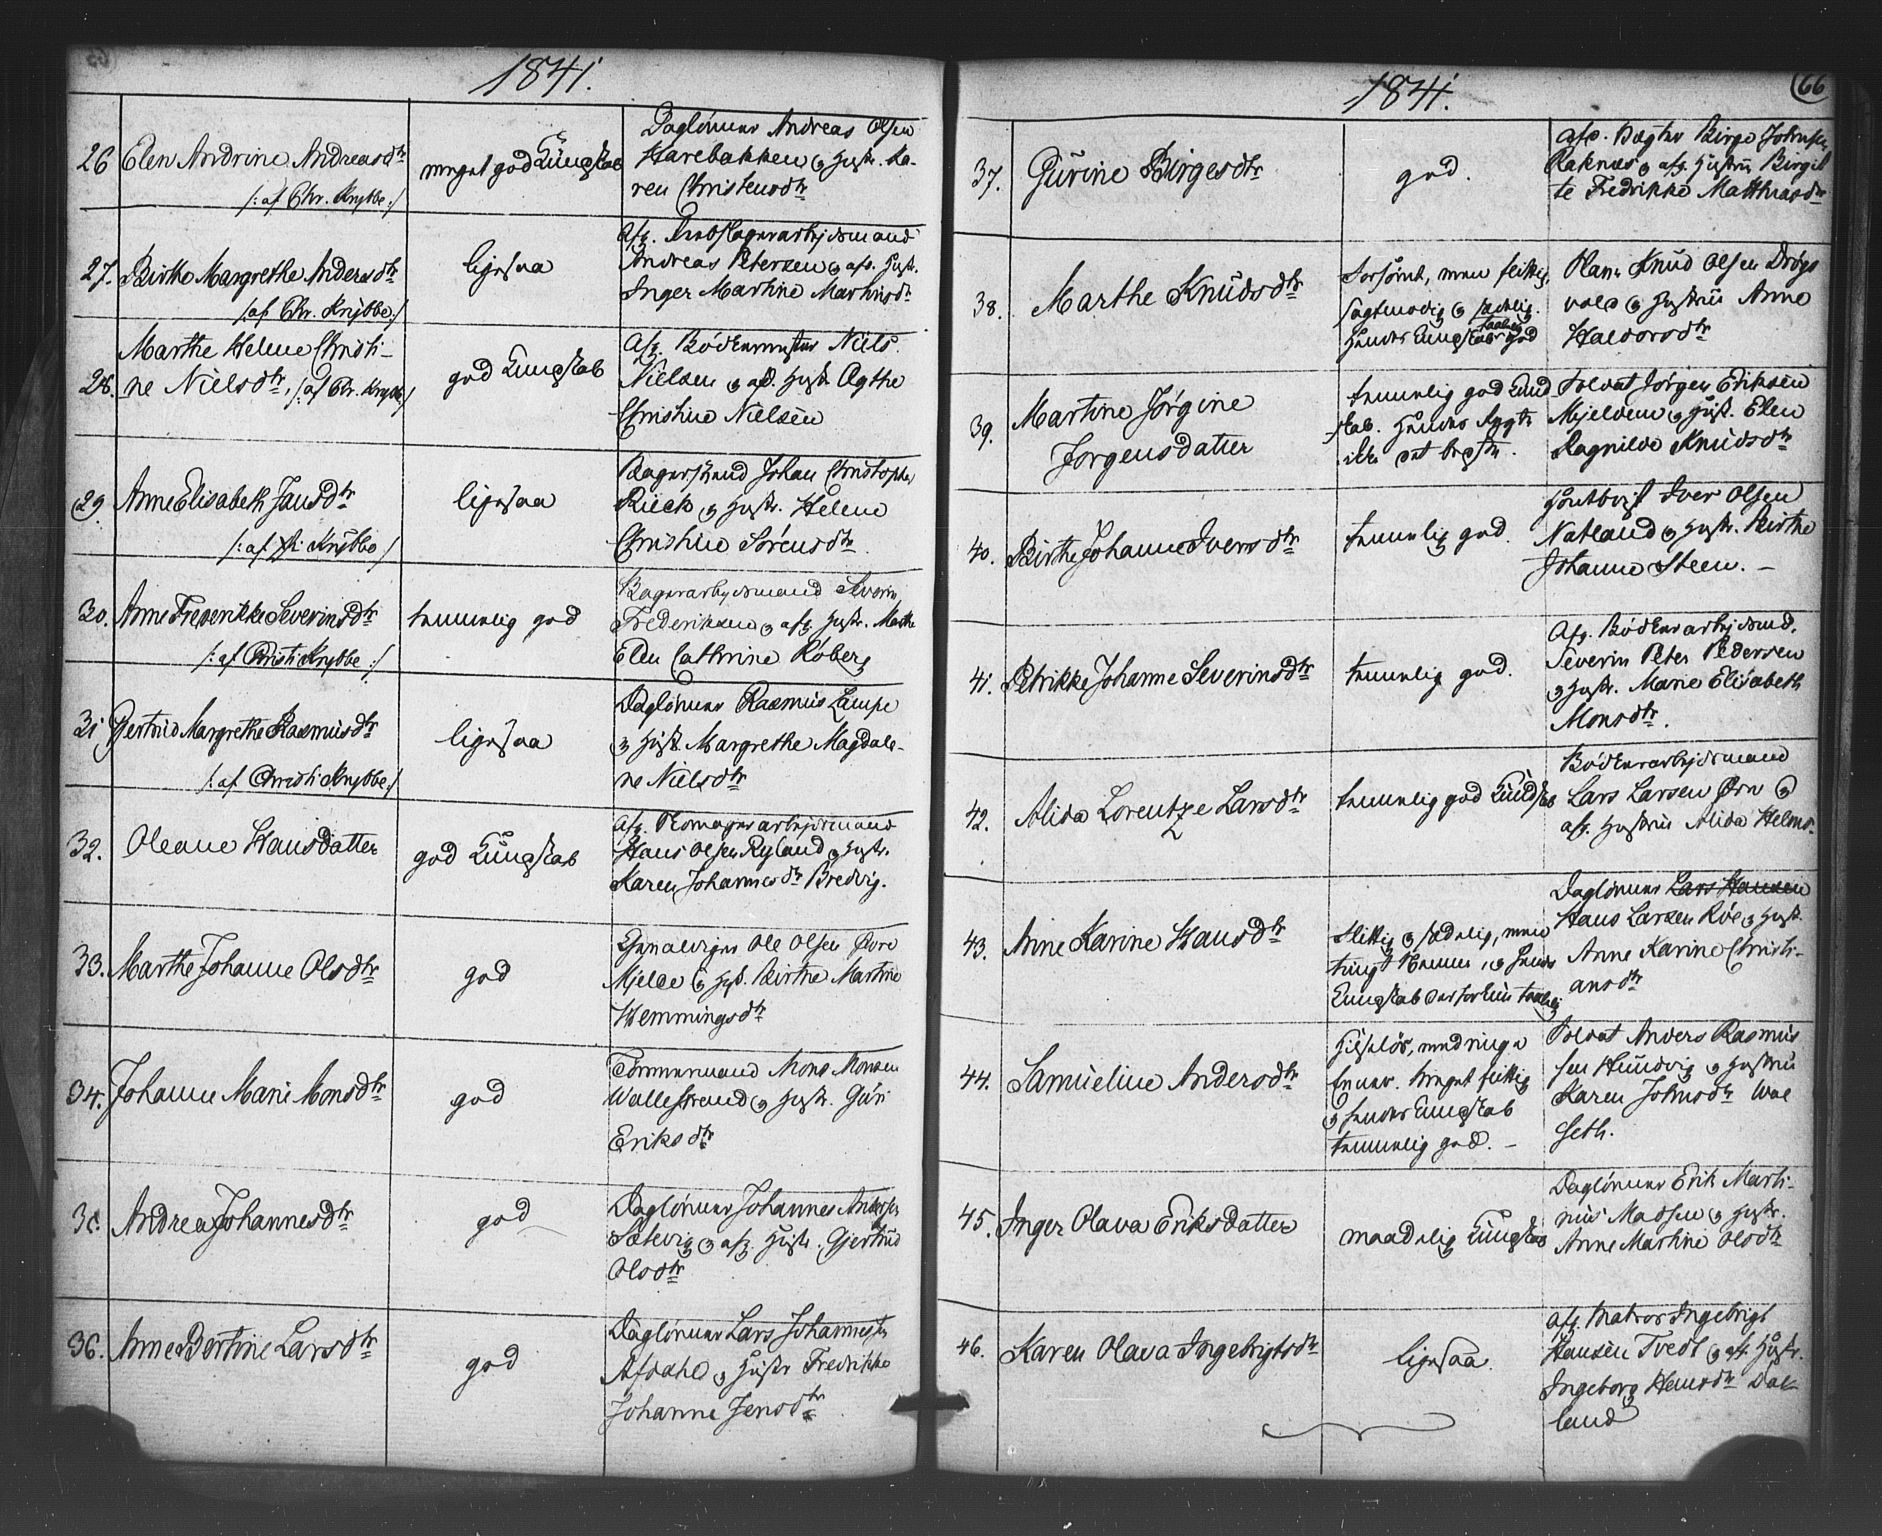 1841.
26 Elen Andrine Andreasdtr
/: af Chr. Krybbe :/
meget god Kundskab
Daglønner Andreas Olsen
Harebakken og Hustr. Ka-
ren Christensdtr
27. Birthe Margrethe Andersdtr
/: af Chr. Krybbe :/
ligesaa
Afg. arbeidsmand
Andreas Petersen og afg. Hustr.
Inger Martine Martinsdtr
28. Marthe Helene Christi-
ne Nielsdtr, /: af Chr. Krybbe :/
god Kundskab
Afg. Bødkermester Niels
Nielsen og afg. Hustr. Agthe
Christine Nielsen
29. Anne Elisabeth Jansdtr
/: af Chr Krybbe /
ligesaa
Bagersvend Johan Christopher
Rieck og Hustr. Helene
Christine Sørensdtr.
30. Anne Frederikke Severinsdtr
/: af Christi Krybbe :/
temmelig god
Bagerarbeidsmand Severin
Frederiksen og afg. Hustr. Marthe
Elen Cathrine Roberg
31 Gertrud Margrethe Rasmusdtr
/: af Christi Krybbe :/
ligesaa
Daglønner Rasmus Lampe
og Hustr. Margrethe Magdale-
ne Nielsdtr
32. Oleane Hansdatter
god Kundskab
afg. arbeidsmand
Hans Olsen Ryland og Hustr.
Karen Johannesdtr Bredvig.
33. Marthe Johanne Olsdtr
god
Ole Olsen Øvre
Mjelde og Hustr. Birthe Martine
Hemmingsdtr
34. Johanne Marie Monsdtr
god
Tømmermand Mons Monsen
Wallestrand og Hustr. Guri
Eriksdtr
35. Andrea Johannesdtr
god
Daglønner Johannes Andersen
Solevig og afg. Hustr. Gjertrud
Olsdtr
36. Anne Bertine Larsdtr
god
Daglønner Lars Johannesen
Afdahl og Hustr Fredrikke
Johanne Jensdtr
66
1841.
37. Gurine Birgesdtr
god.
afg. Vægter Birge Johnsen
Raknes og afg. Hustru Birgit-
te Fredrikke Matthiasdtr
38. Marthe Knudsdtr
Forsømt, men flittig,
sagtmodig og sædelig.
Hendes Kundskab taalelig god
Knud Olsen Drøgs
vold og Hustru Anne
Halvorsdtr
39. Martine Jørgine
Jørgensdatter
temmelig god Kund-
skab. Hendes Rygte
ikke det bedste.
Soldat Jørgen Eriksen
Mjeldem og Hust. Elen
Ragnilde Knudsdtr
40. Birthe Johanne Iversdtr
temmelig god
Iver Olsen
Natland og Hustr. Birthe
Johanne Steen. –
41. Petrikke Johanne Severinsdtr
temmelig god.
Afg. Bødkerarbeidsmd.
Severin Peter Pedersen
og Hustr. Marie Elisabeth
Monsdtr.
42. Alida Lorentze Larsdtr
temmelig god Kundskab
Bødkerarbeidsmand
Lars Larsen Ørn og
afg. Hustru Alida Helmsdtr
43. Anne Karine Hansdtr
Flittig og sædelig, men
tungt Nemme, og hendes
Kundskab derfor kun taalelig
Daglønner Lars Hansen
Hans Larsen Røe og Hustr.
Anne Karine Christi-
ansdtr
44. Samueline Andersdtr
Hielpløs, med ringe
Evner. Meget flittig
og hendes Kundskab
temmelig god. –
Soldat Anders Rasmus
sen Hundvig og Hustru
Karen Johnsdtr Wol
seth.
45. Inger Olava Eriksdatter
maadelig Kundskab
Daglønner Erik Marti-
nus Madsen og Hustr.
Anne Martine Olsdtr
46. Karen Olava Ingebrigtsdtr
ligesaa.
afg. Matros Ingebrigt
Hansen Tvedt og afg. Hustr.
Ingeborg Hansdtr Dal-
land